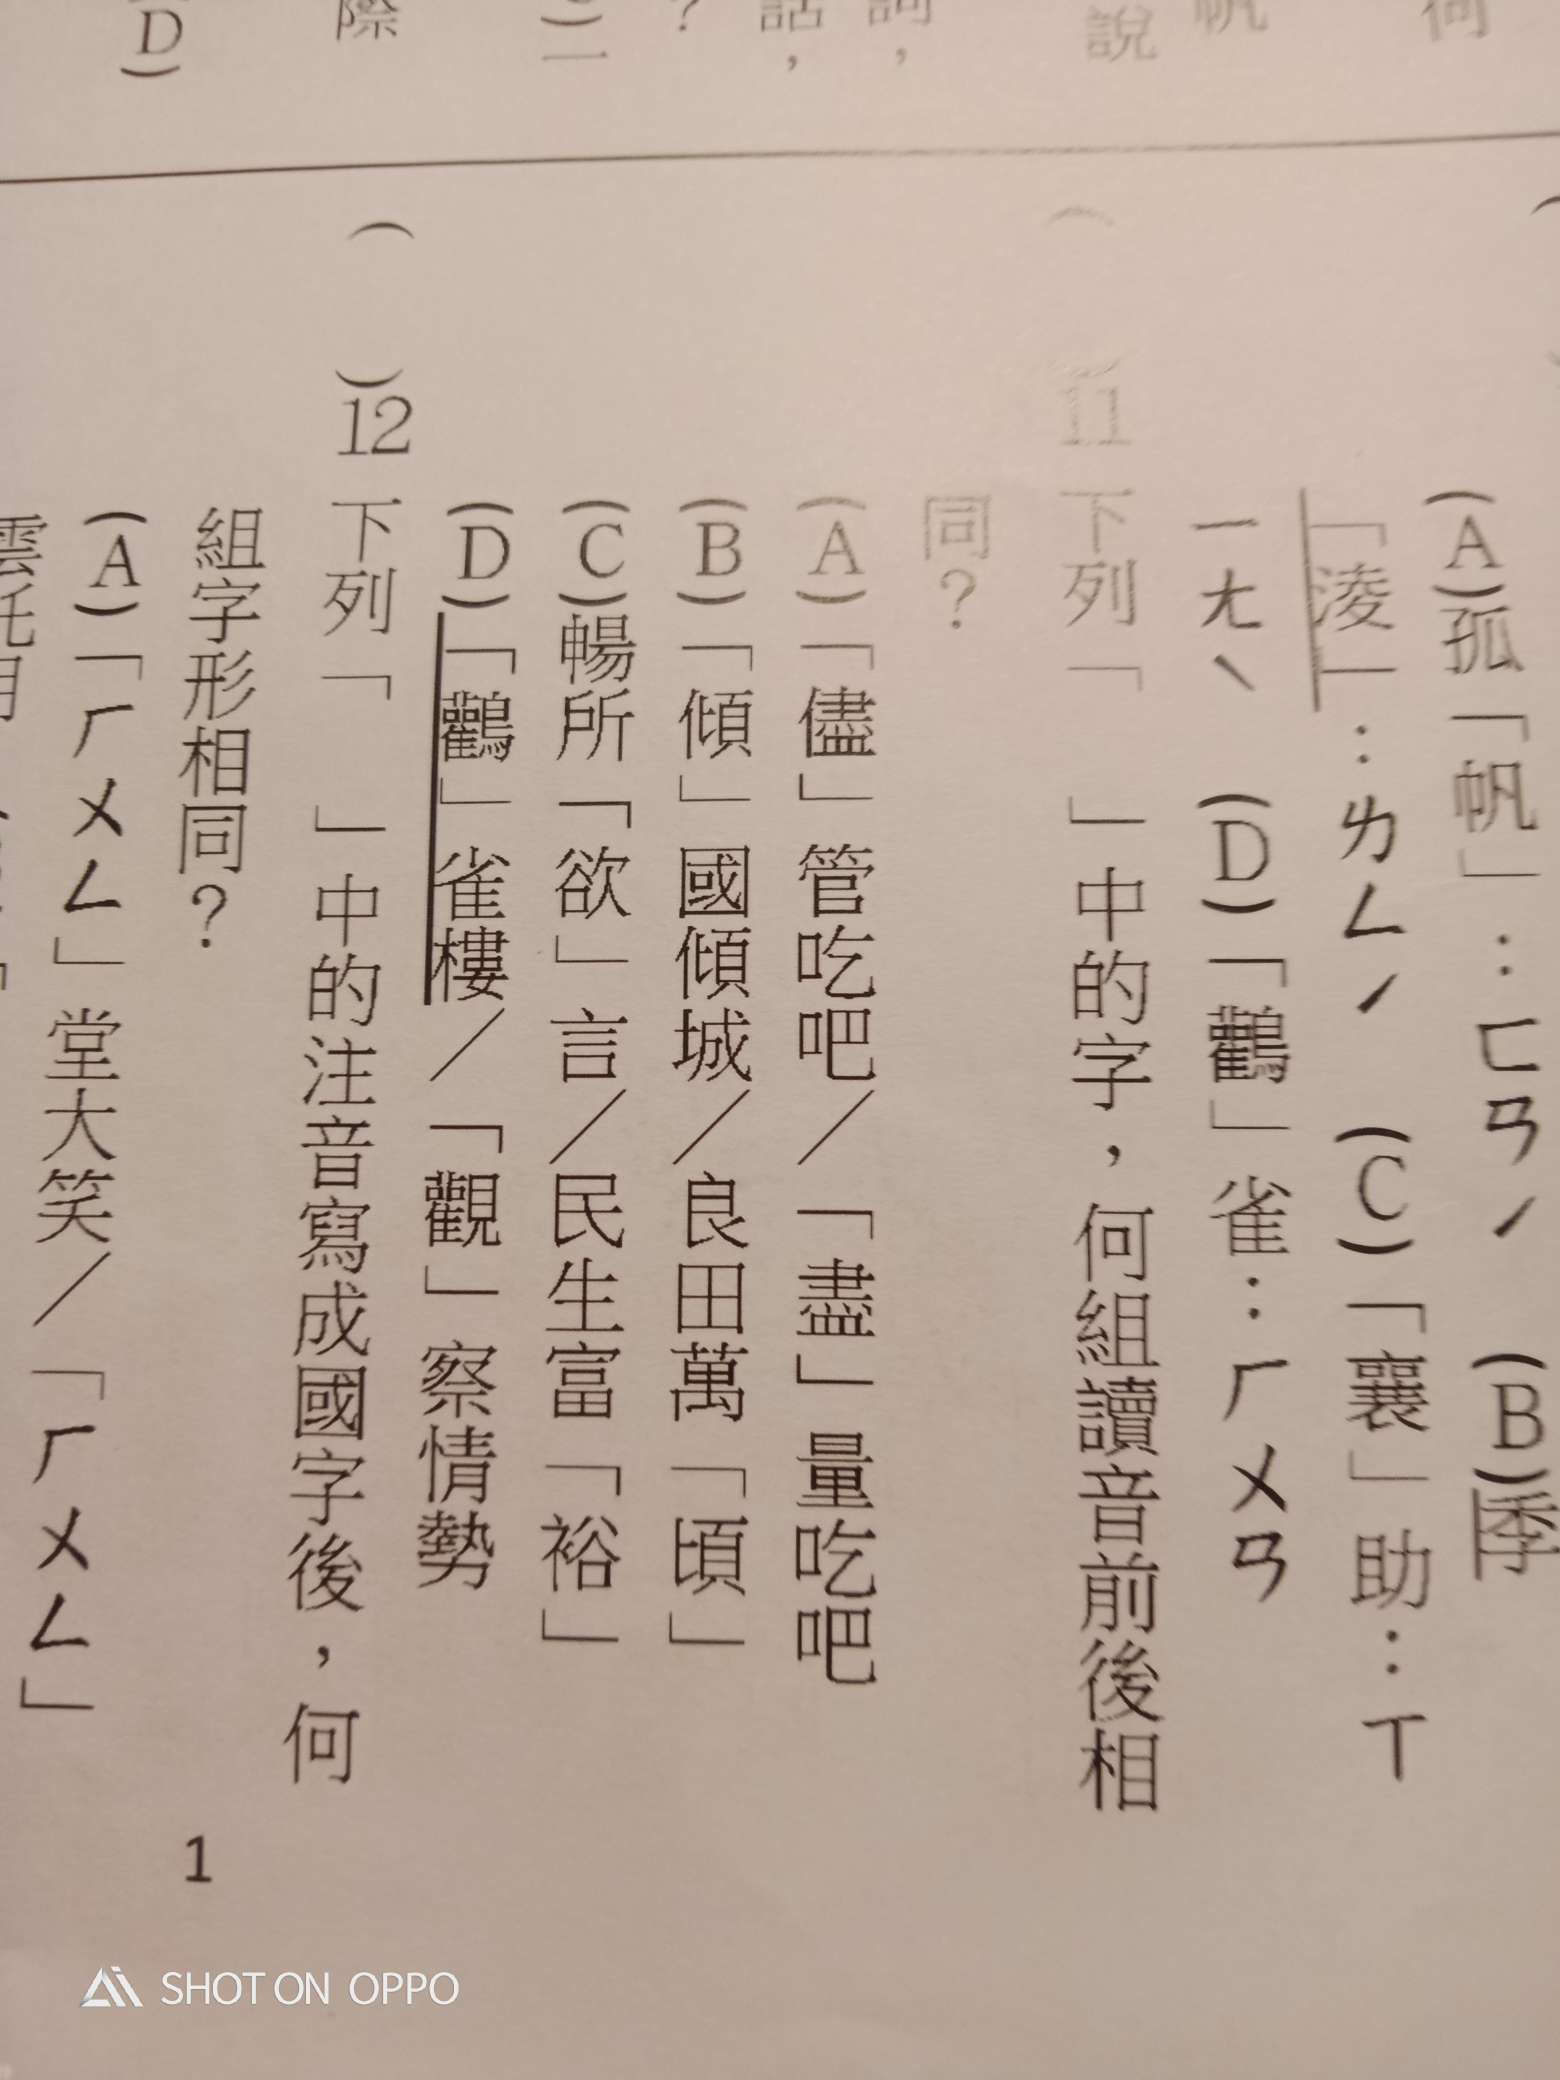 (A)孤「帆」：ㄈㄢˊ (B)季
「淩」：ㄌㄥˊ (C)「襄」助：ㄒ
ㄧㄤˋ (D)「鸛」雀：ㄏㄨㄢ
( )11 下列「 」中的字，何組讀音前後相
同？
(A)「儘」管吃吧／「盡」量吃吧
(B)「傾」國傾城／良田萬「頃」
(C)暢所「欲」言／民生富「裕」
(D)「鸛」雀樓／「觀」察情勢
( )12 下列「 」中的注音寫成國字後，何
組字形相同？
(A)「ㄏㄨㄥ」堂大笑／「ㄏㄨㄥ」
1
SHOT ON OPPO